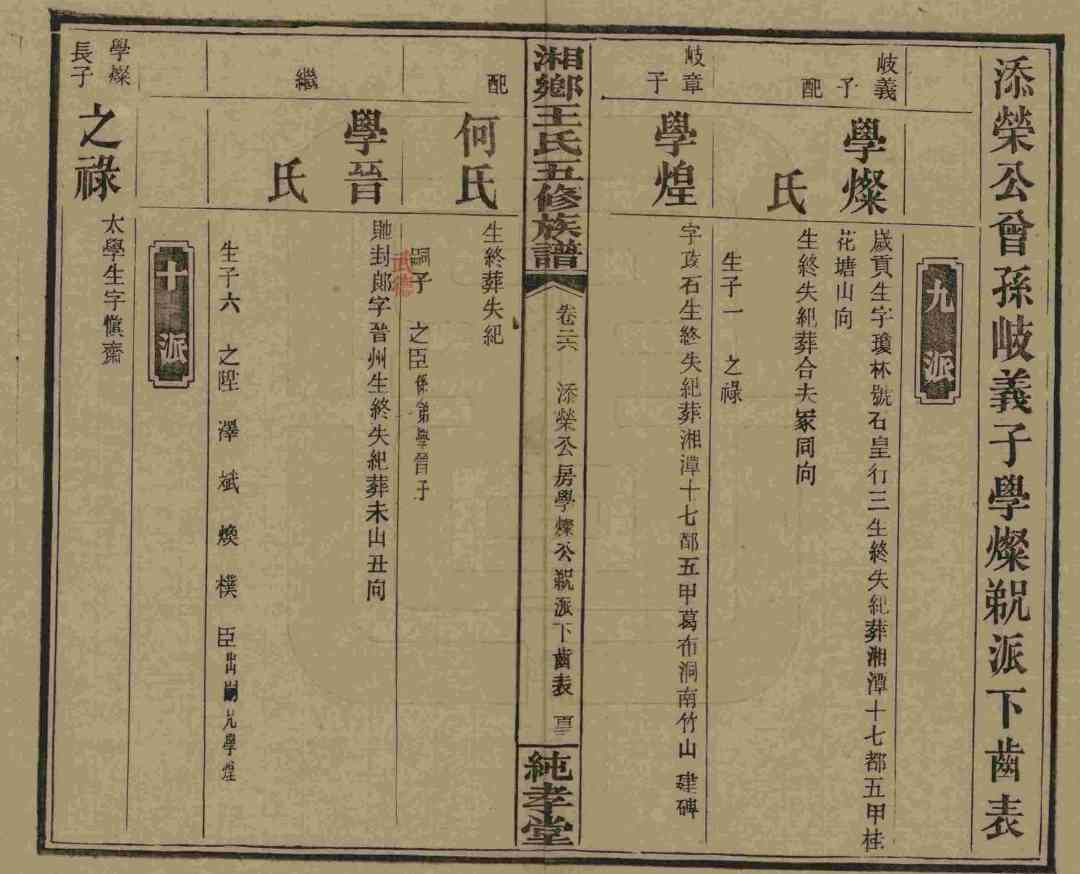 添榮公曾孫岐義子學燦派下齒表
九派
岐義子
學燦
歲貢生字瓊林號石皇行三生終失紀葬湘潭十七都五甲桂
花塘山向
配
氏
生終失紀葬合夫冢同向
生子一 之祿
岐章子
學煌
字攻石生終失紀葬湘潭十七都五甲葛布洞南竹山 建碑
湘鄉王氏五修族譜
卷三六 添榮公房學燦公派下齒表
純孝堂
配
何氏
生終葬失紀
嗣子 之臣係弟學晉子
武德
學晉
貤封郎字晉州生終失紀葬未山丑向
繼
氏
生子六 之陞 澤 斌 煥 樸 臣出嗣兄學煌
十派
學燦長子
之祿
太學生字愼齋